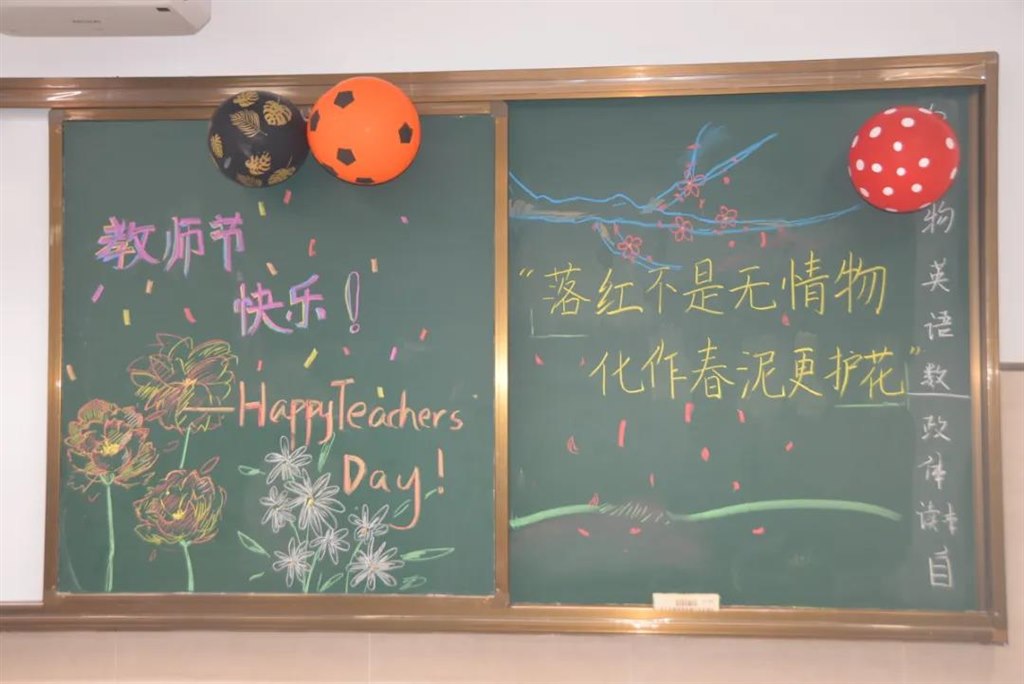 教师节
快乐！
—HappyTeachers
Day!
“落红不是无情物
化作春泥更护花”
物
英
语
数
政
体
读
自